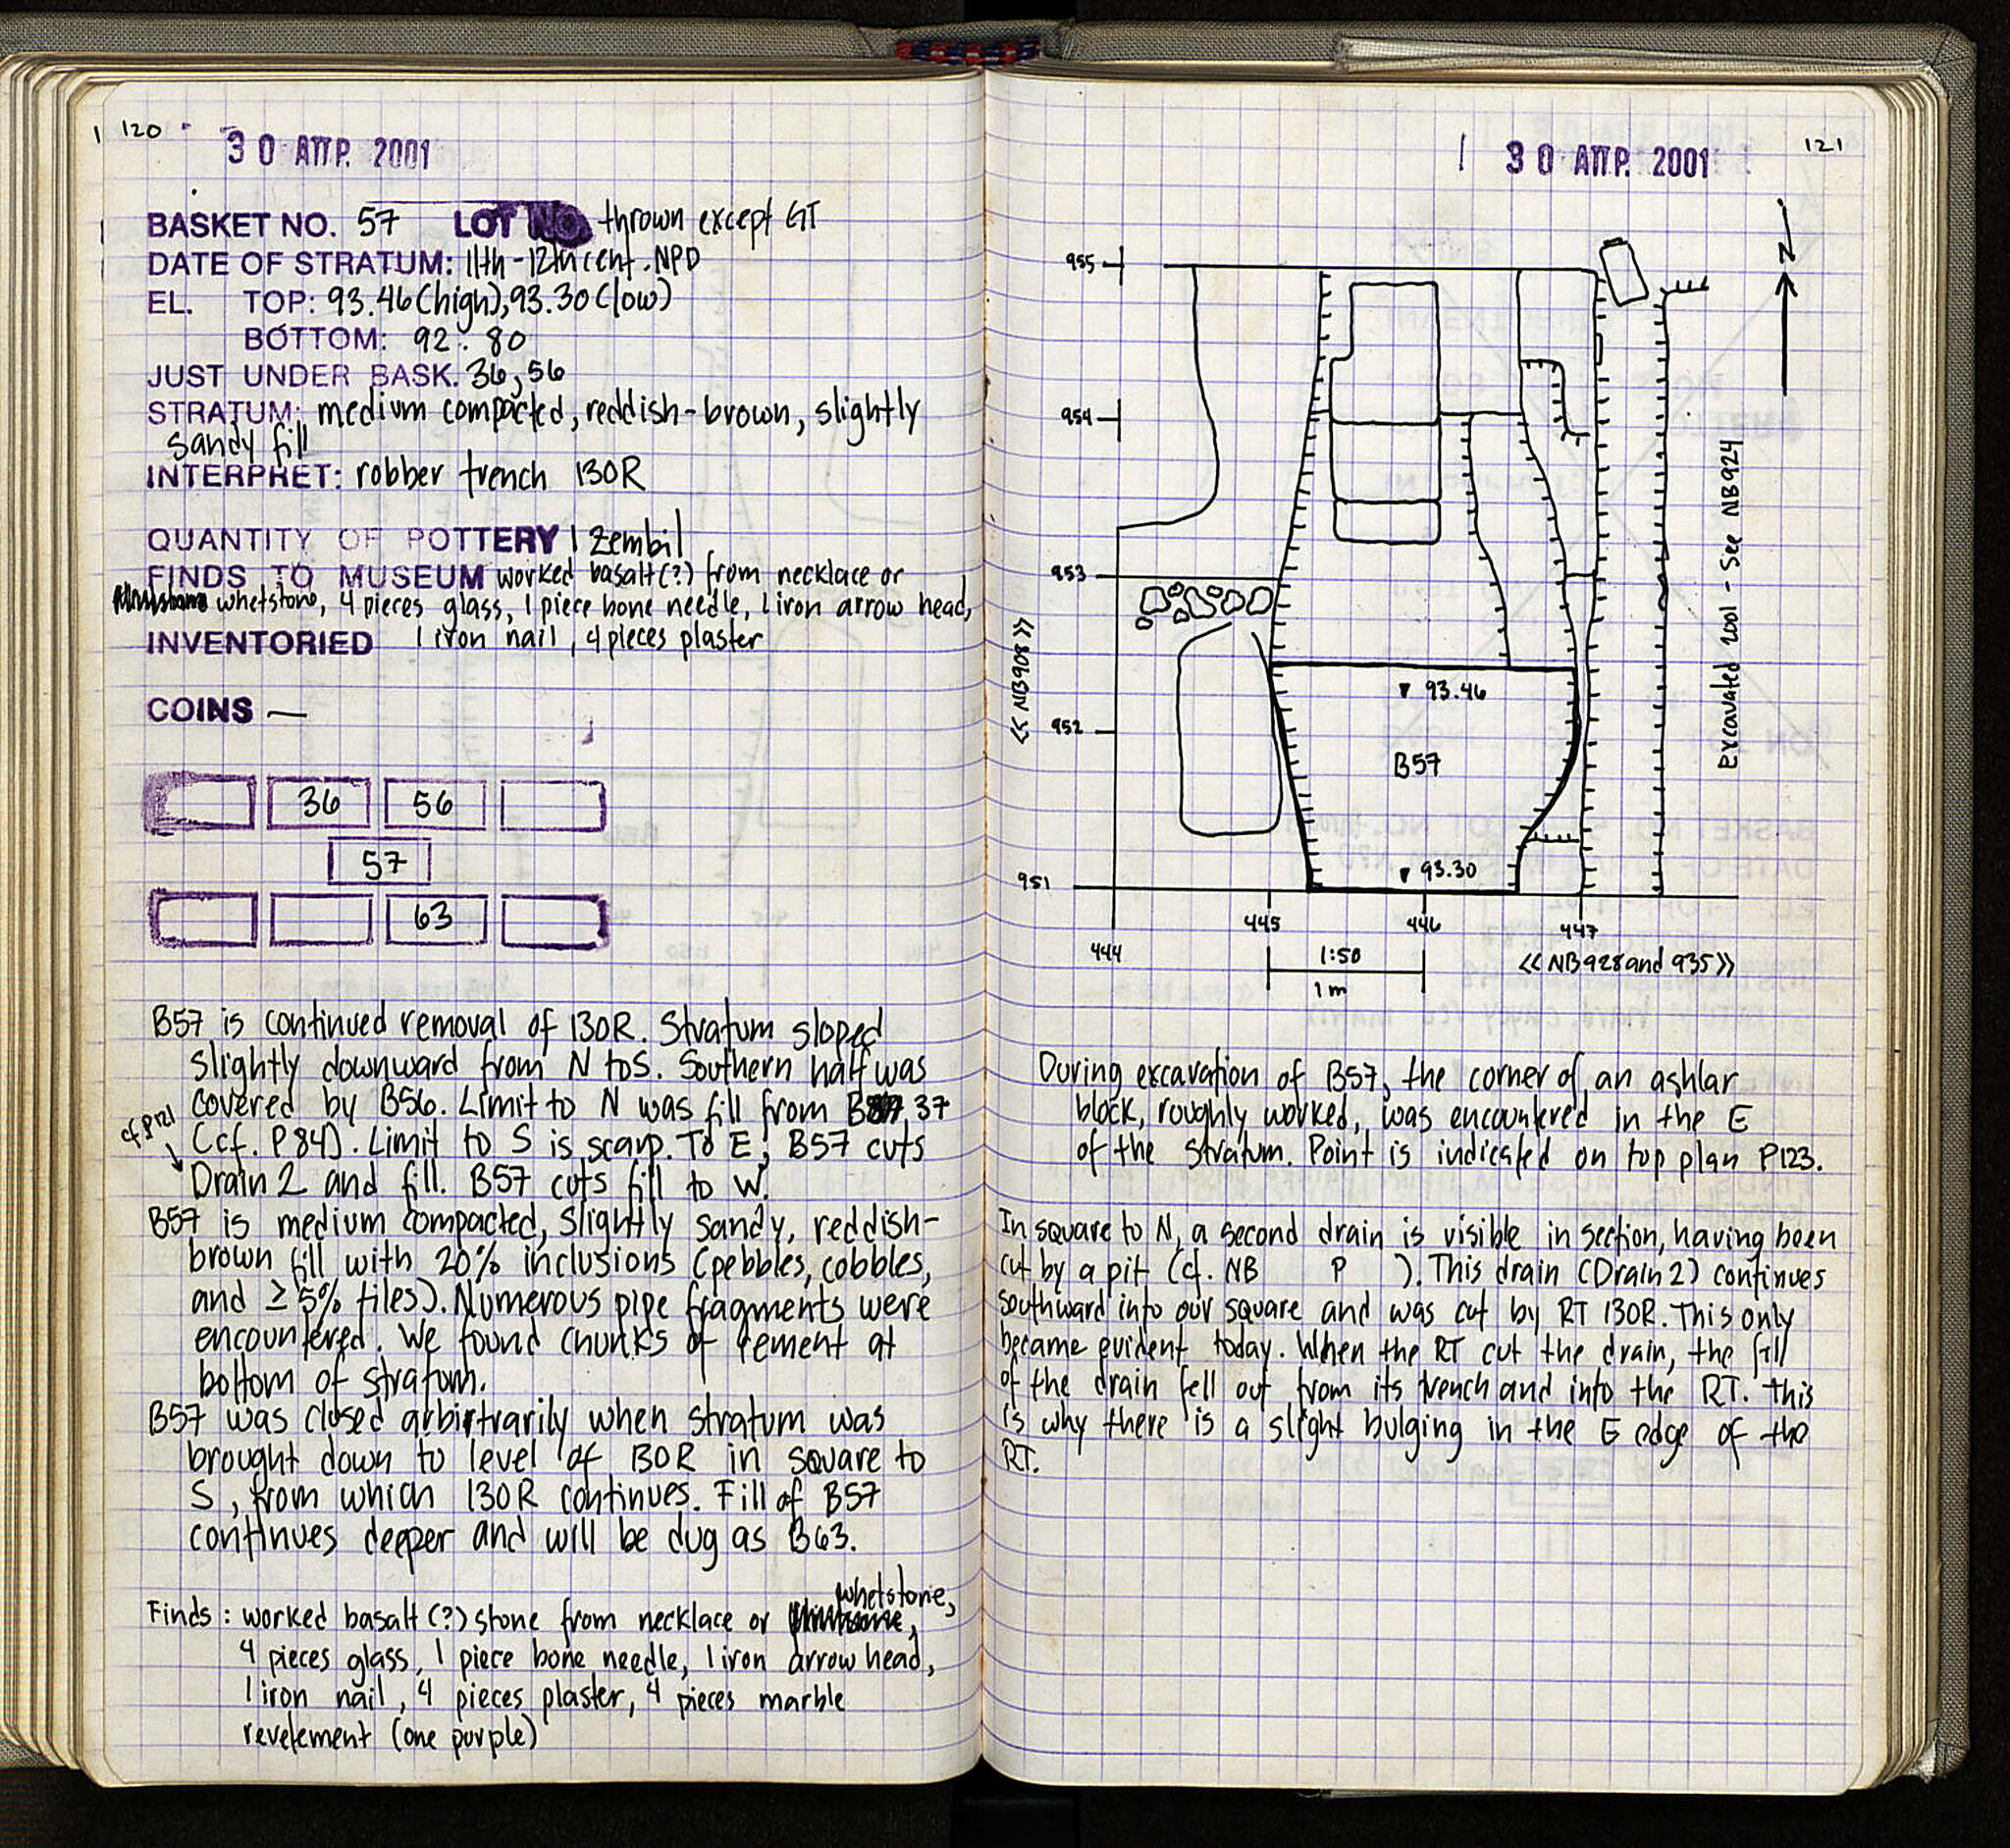 120
30 ΑΠΡ. 2001
BASKET NO. 57 LOT NO. thrown except GT
DATE OF STRATUM: 11th-12th cent. NPD
EL. TOP: 93.46 (high), 93.30 (low)
BOTTOM: 92.80
JUST UNDER BASK. 36, 56
STRATUM: medium compacted, reddish-brown, slightly
sandy fill
INTERPRET: robber trench 130R
QUANTITY OF POTTERY 1 zembil
FINDS TO MUSEUM worked basalt(?) from necklace or
whetstone, 4 pieces glass, 1 piece bone needle, 1 iron arrow head,
INVENTORIED 1 iron nail, 4 pieces plaster
COINS —
36 56
57
63
B57 is continued removal of 130R. Stratum sloped
slightly downward from N to S. Southern half was
covered by B56. Limit to N was fill from B 37
cf P121
(cf. P84). Limit to S is scarp. To E, B57 cuts
Drain 2 and fill. B57 cuts fill to W.
B57 is medium compacted, slightly sandy, reddish-
brown fill with 20% inclusions (pebbles, cobbles,
and ≥5% tiles). Numerous pipe fragments were
encountered. We found chunks of cement at
bottom of stratum.
B57 was closed arbirtrarily when stratum was
brought down to level of 130R in square to
S, from which 130R continues. Fill of B57
continues deeper and will be dug as B63.
whetstone,
Finds: worked basalt (?) stone from necklace or
4 pieces glass, 1 piece bone needle, 1 iron arrow head,
1 iron nail, 4 pieces plaster, 4 pieces marble
revetement (one purple)
121
30 ΑΠΡ. 2001
N
955
954
953
952
951
<< NB908 >>
Excavated 2001 - See NB924
▾ 93.46
B57
▾ 93.30
444
445
446
447
1:50
1m
<< NB928 and 935 >>
During excavation of B57, the corner of an ashlar
block, roughly worked, was encountered in the E
of the stratum. Point is indicated on top plan P123.
In square to N, a second drain is visible in section, having been
cut by a pit (cf. NB P ). This drain (Drain 2) continues
southward into our square and was cut by RT 130R. This only
became evident today. When the RT cut the drain, the fill
of the drain fell out from its trench and into the RT. This
is why there is a slight bulging in the E edge of the
RT.